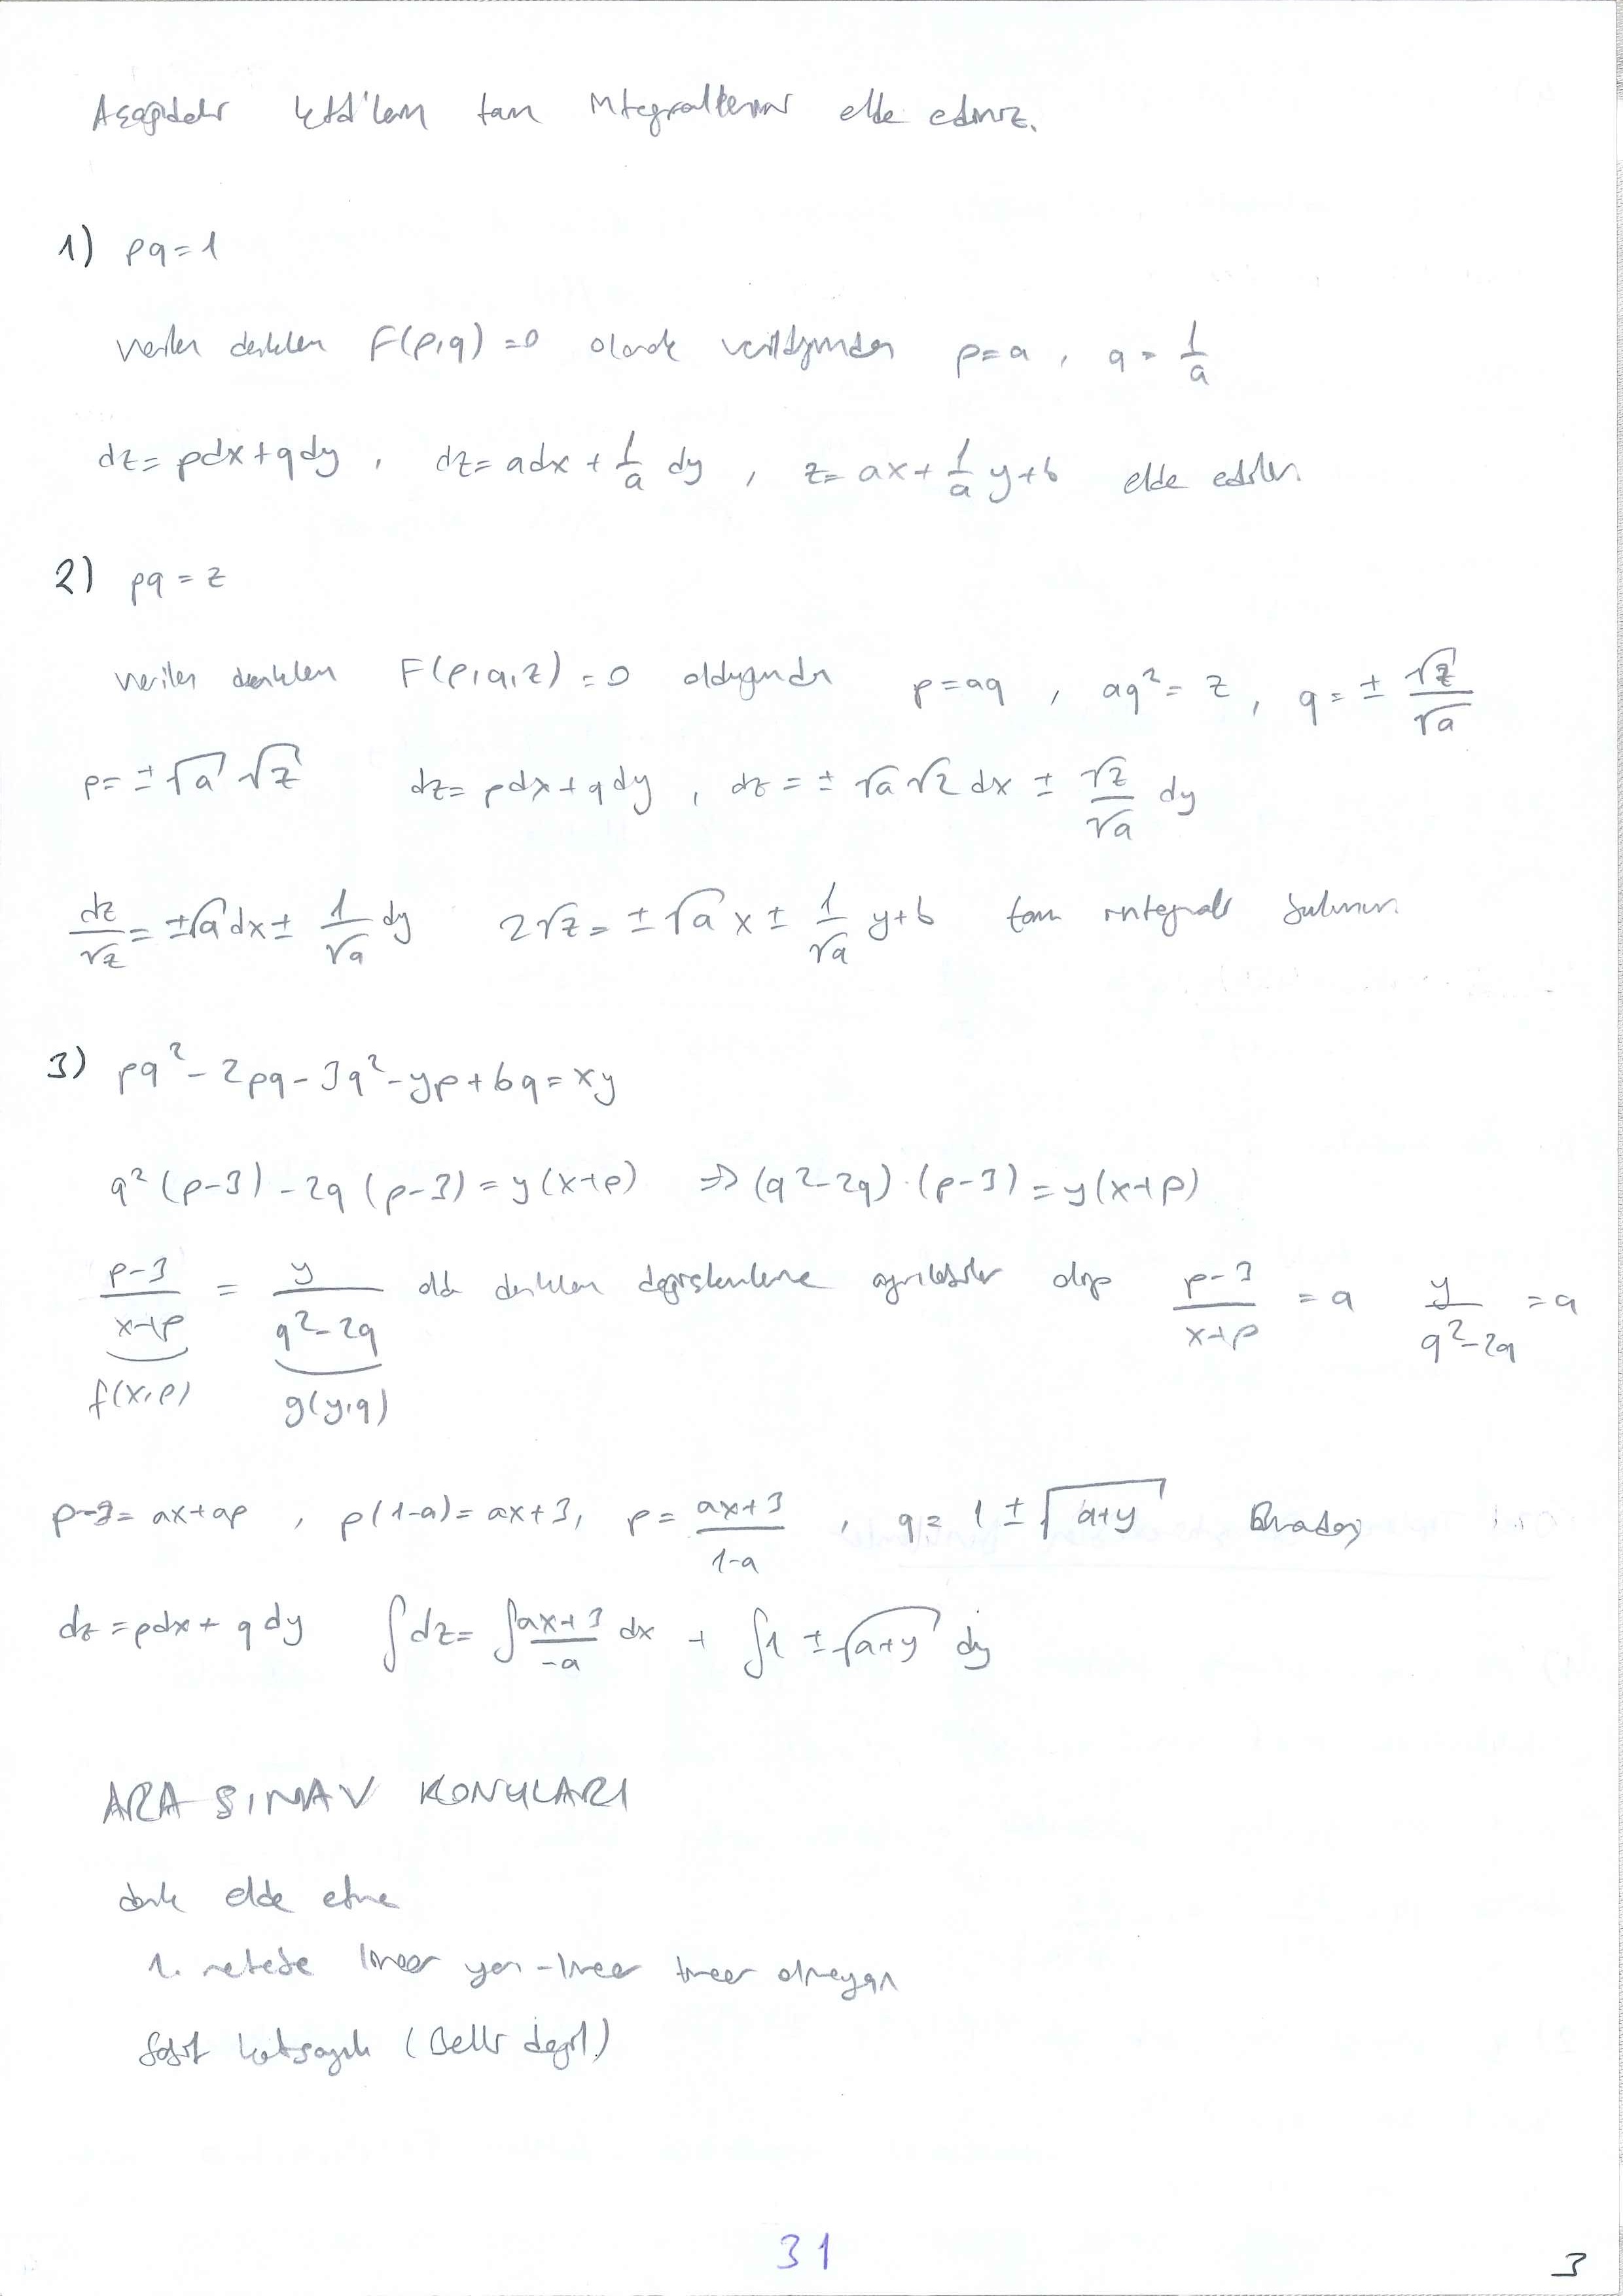 Aşağıdaki kdd'lem tam integrallerini elde ediniz.
1) pq=1
verilen denklem F(p,q)=0 olarak verildiğinden p=a, q=1/a
dz=pdx+qdy, dz=adx+1/a dy, z=ax+1/a y+b elde edilir.
2) pq=z
verilen denklem F(p,q,z)=0 olduğundan p=aq, aq²=z, q=±√z/√a
p=±√a √z dz=pdx+qdy, dz=±√a√z dx ± √z/√a dy
dz/√z=±√a dx ± 1/√a dy 2√z=±√a x ± 1/√a y+b tam integrali bulunur.
3) pq²-2pq-3q²-yp+6q=xy
q²(p-3)-2q(p-3)=y(x+p) ⇒ (q²-2q).(p-3)=y(x+p)
p-3/x+p = y/q²-2q denklem değişkenlerine ayrılabilir olup p-3/x+p =a y/q²-2q =a
f(x,p) g(y,q)
p-3=ax+ap, p(1-a)=ax+3, p=ax+3/1-a, q=1±√a+y Buradan
dz=pdx+qdy ∫dz=∫ax+3/-a dx + ∫1±√a+y dy
ARA SINAV KONULARI
denk elde etme
1. mertebe lineer yarı-lineer lineer olmayan
Sabit katsayılı (Belli değil)
31
3